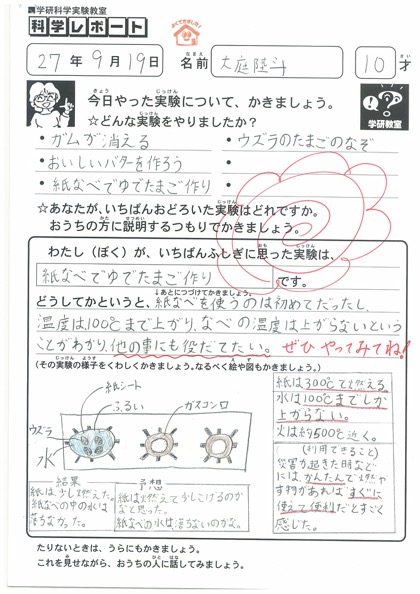 学研科学実験教室
科学レポート
よくできました!
27年9月19日
名前 大庭陸斗
10才
今日やった実験について、かきましょう。
☆どんな実験をやりましたか?
・ガムが消える
・ウズラのたまごのなぞ
・おいしいバターを作ろう
・
・紙なべでゆでたまご作り
・
学研教室
☆あなたが、いちばんおどろいた実験はどれですか。
おうちの方に説明するつもりでかきましょう。
わたし(ぼく)が、いちばんふしぎに思った実験は、
紙なべでゆでたまご作り です。
↓あとにつづけてかきましょう。
どうしてかというと、紙なべを使うのは初めてだったし、
温度は100℃まで上がり、なべの温度は上がらないという
ことがわかり、他の事にも役だてたい。
ぜひ やってみてね!
(その実験の様子をくわしくかきましょう。なるべく絵や図もかきましょう。)
紙シート
ふるい
ガスコンロ
ウズラ
水
紙は300℃で燃える
水は100℃までしか
上がらない。
火は約500℃近く。
(利用できること)
災害が起きた時など
には、かんたんで燃や
す物があればすぐに
使えて便利だとすごく
感じた。
結果
紙は、少し燃えた。
紙なべの中の水は
落ちなかった。
予想
紙は燃えて少しこげるのか
なと思った。
紙なべの水は落ちないのかな。
たりないときは、うらにもかきましょう。
これを見せながら、おうちの人に話してみましょう。